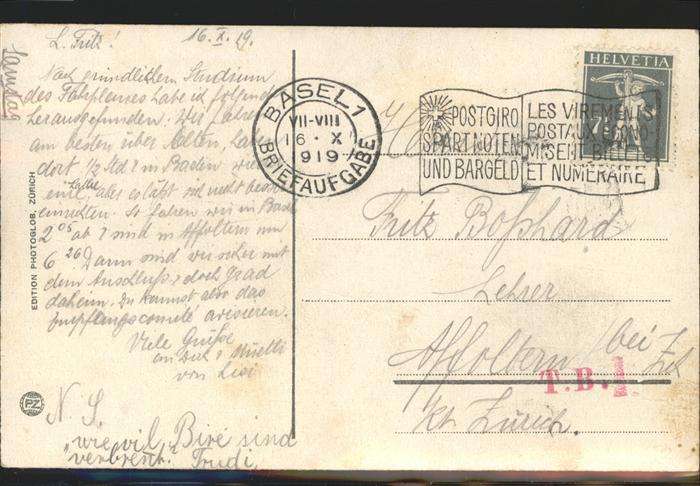 L. Fritz! 16. X. 19.
Samstag
Nach gründlichem Studium
des Fahrplanes habe ich folgendes
herausgefunden. Wir fahren
am besten über Olten, haben
dort ½ Std. in Baden
eine aber es läßt sich nicht besser
einrichten. So fahren wir in Basel
2 05 ab & sind in Affoltern um
6 26 Dann sind wir sicher mit
dem Anschluß & doch Grad
daheim. Du kannst also das
Empfangscomité avisieren.
Viele Grüße
an Dich & Muetti
von Lisi
N. S.
"wie vil Bire sind
verbrennt." Trudi
EDITION PHOTOGLOB, ZÜRICH
PZ
BASEL 1
VII-VIII
16 · X
1919
BRIEFAUFGABE
POSTGIRO
SPART NOTEN
UND BARGELD
LES VIREMENTS
POSTAUX ECONO-
MISENT BILLETS
ET NUMERAIRE
HELVETIA
7½
Fritz Boßhard
Lehrer
Affoltern / bei Zch
T.B.1
Kt. Zürich.